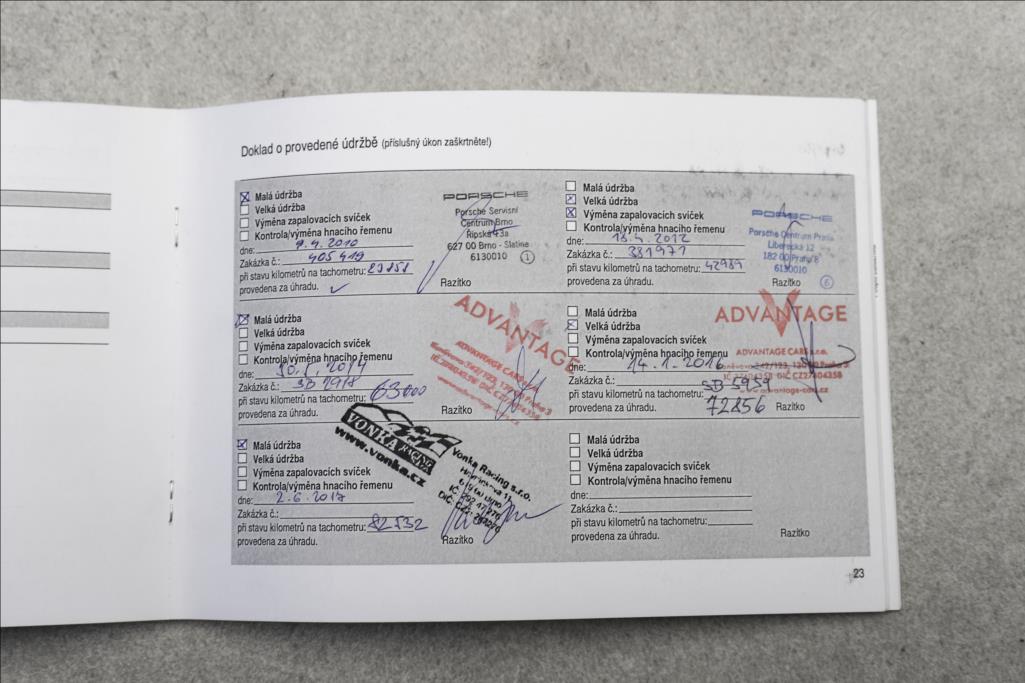 Doklad o provedené údržbě (příslušný úkon zaškrtněte!)
Malá údržba
Velká údržba
Výměna zapalovacích svíček
Kontrola/výměna hnacího řemenu
dne: 9.4.2010
Zakázka č.: 405419
při stavu kilometrů na tachometru: 23151
provedena za úhradu.
Razítko
PORSCHE
Porsche Servisní
Centrum Brno
Řípská 13a
627 00 Brno - Slatina
6130010 1
Malá údržba
Velká údržba
Výměna zapalovacích svíček
Kontrola/výměna hnacího řemenu
dne: 13.4.2012
Zakázka č.: 331971
při stavu kilometrů na tachometru: 42989
provedena za úhradu.
Razítko
PORSCHE
Porsche Centrum Praha
Liberecká 12
182 00 Praha 8
6130010 6
Malá údržba
Velká údržba
Výměna zapalovacích svíček
Kontrola/výměna hnacího řemenu
dne: 2014
Zakázka č.: SB 1918
při stavu kilometrů na tachometru: 63000
provedena za úhradu.
Razítko
ADVANTAGE
ADVANTAGE CARS s.r.o.
Malá údržba
Velká údržba
Výměna zapalovacích svíček
Kontrola/výměna hnacího řemenu
dne: 14.1.2016
Zakázka č.: SB 5959
při stavu kilometrů na tachometru: 72856
provedena za úhradu.
Razítko
ADVANTAGE
ADVANTAGE CARS s.r.o.
Malá údržba
Velká údržba
Výměna zapalovacích svíček
Kontrola/výměna hnacího řemenu
dne: 2.6.2017
Zakázka č.:
při stavu kilometrů na tachometru: 82532
provedena za úhradu.
Razítko
VONKA RACING
www.vonka.cz
Vonka Racing s.r.o.
Malá údržba
Velká údržba
Výměna zapalovacích svíček
Kontrola/výměna hnacího řemenu
dne:
Zakázka č.:
při stavu kilometrů na tachometru:
provedena za úhradu.
Razítko
23